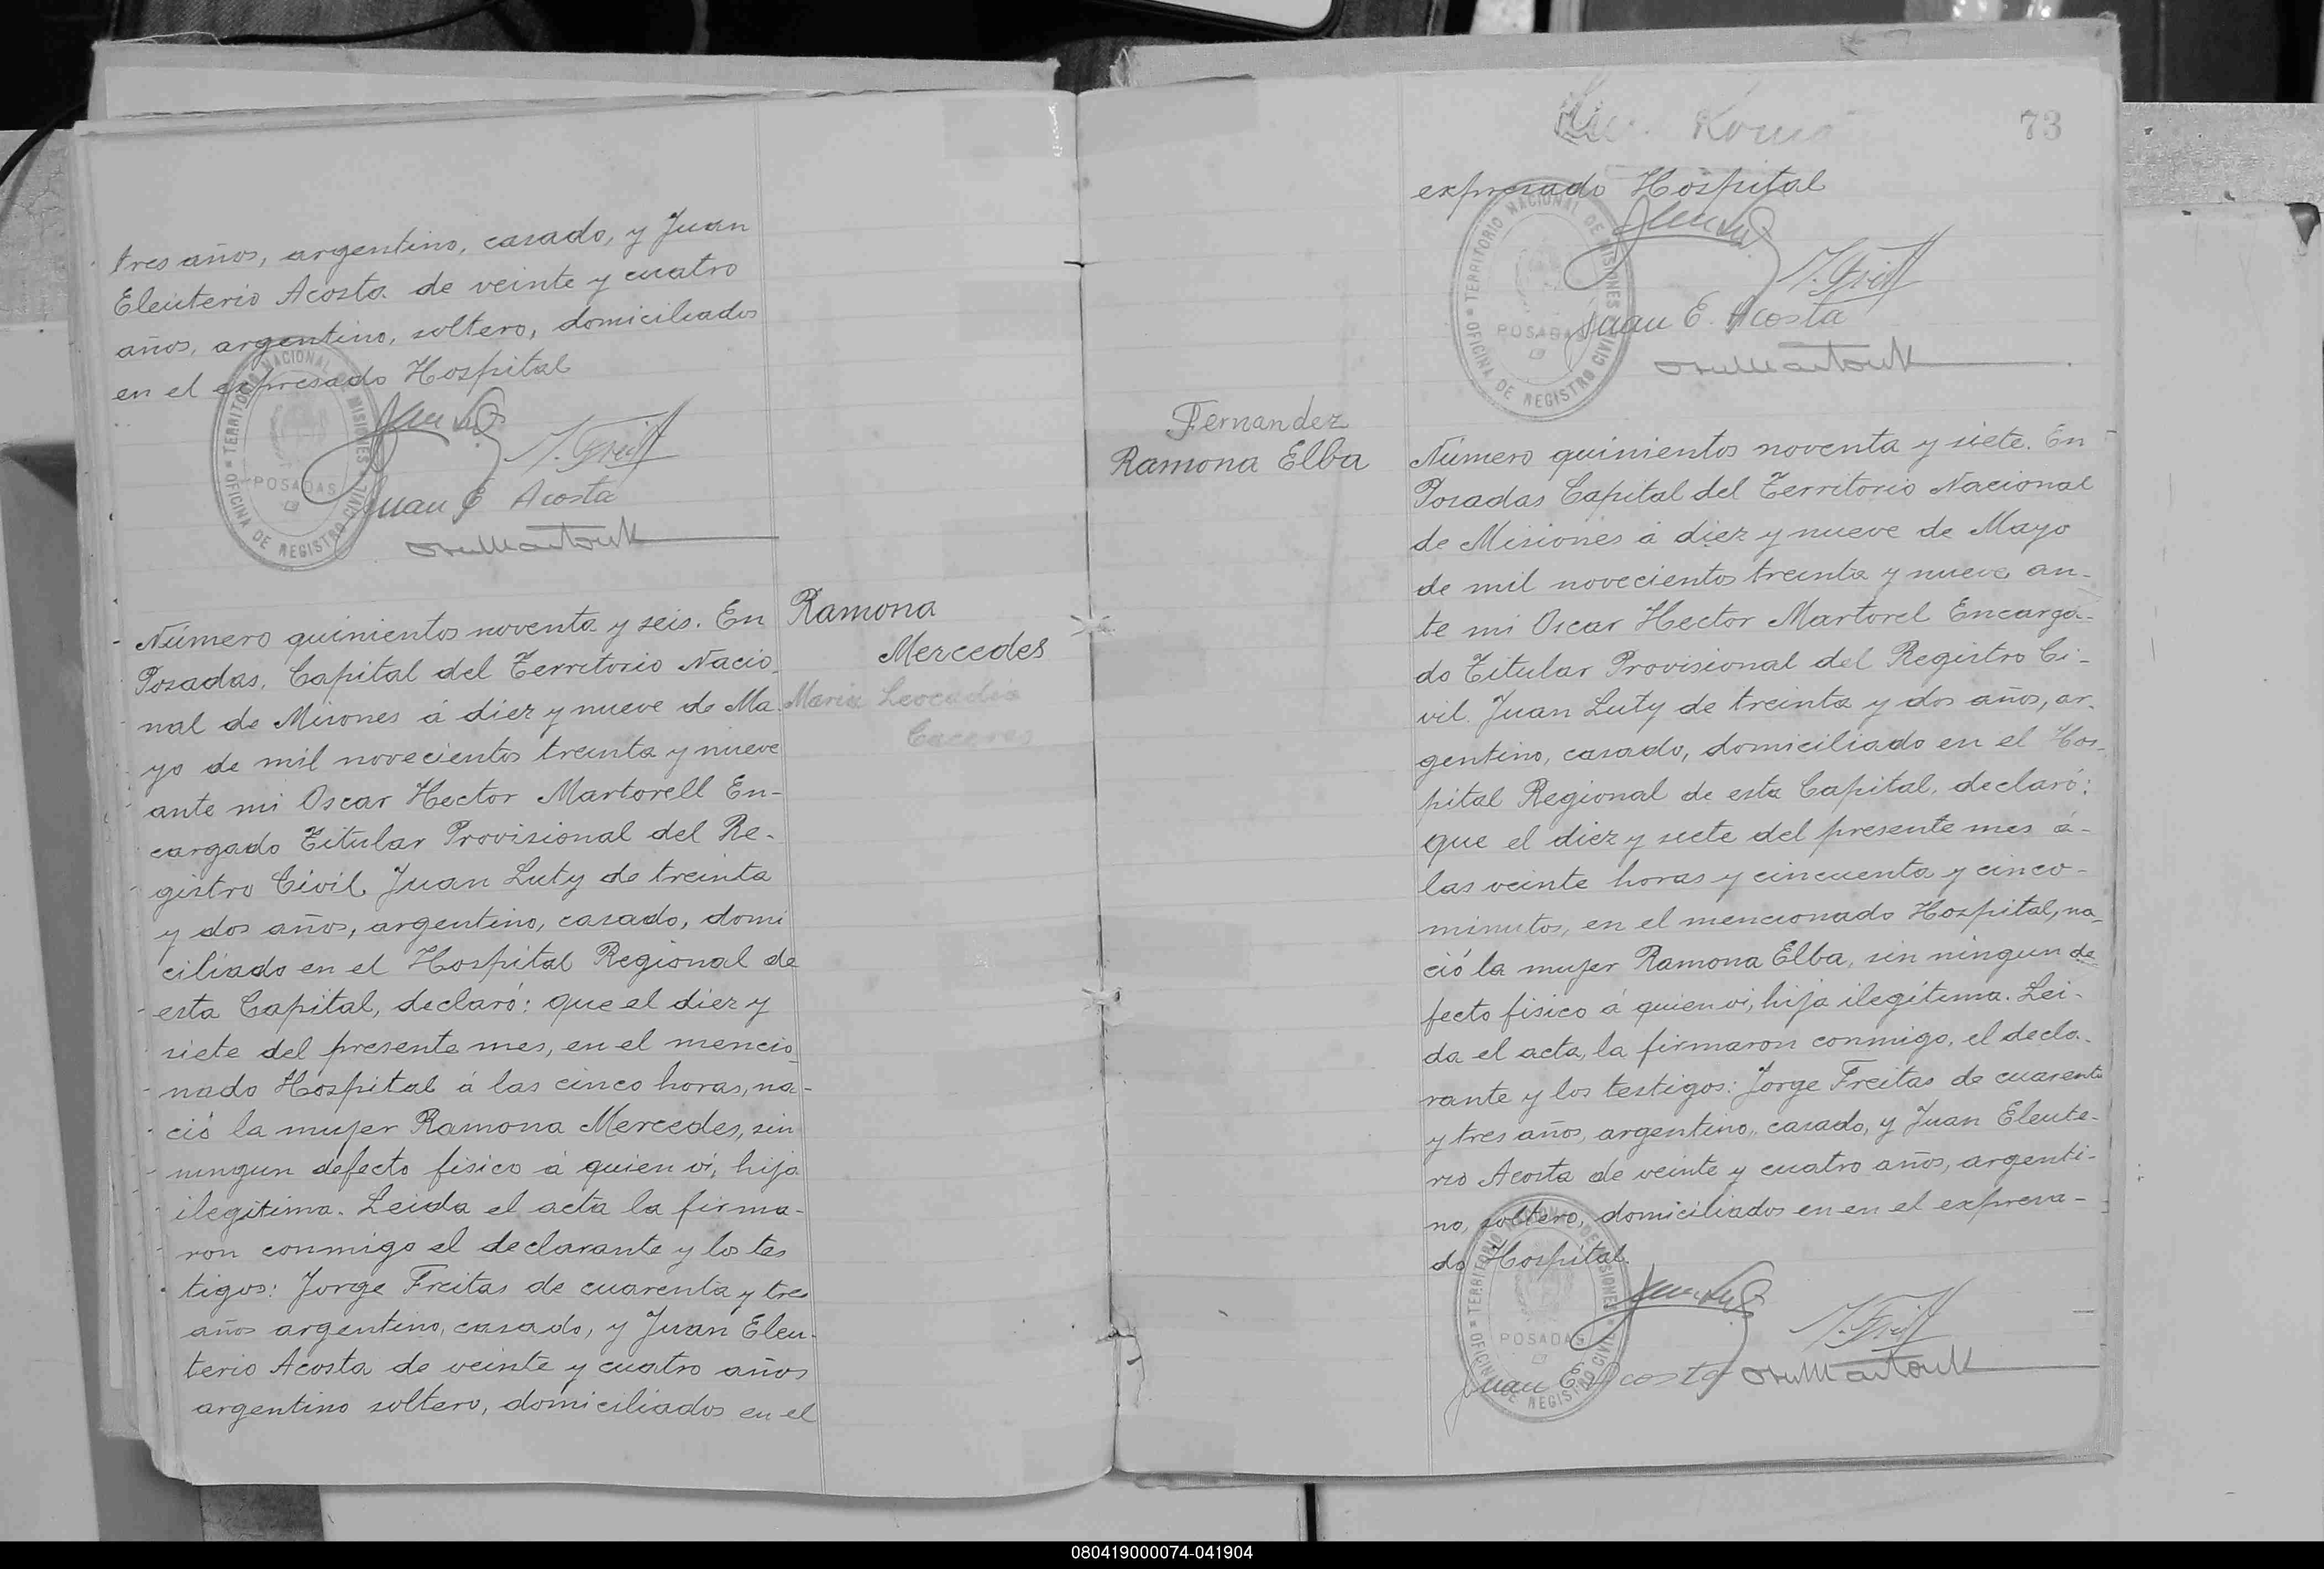 tres años, argentino, casado, y Juan
Eleuterio Acosta de veinte y cuatro
años, argentino, soltero, domiciliados
en el expresado Hospital
OFICINA DE REGISTRO CIVIL TERRITORIO NACIONAL DE MISIONES
POSADAS
Juan E Acosta
Número quinientos noventa y seis. En
Posadas, Capital del Territorio Nacio
nal de Misiones á diez y nueve de Ma
yo de mil novecientos treinta y nueve
ante mi Oscar Hector Martorell En-
cargado Titular Provisional del Re-
gistro Civil Juan Luty de treinta
y dos años, argentino, casado, domi
ciliado en el Hospital Regional de
esta Capital, declaró: que el diez y
siete del presente mes, en el mencio
nado Hospital á las cinco horas, na-
ció la mujer Ramona Mercedes, sin
ningun defecto fisico á quien vi, hija
ilegitima. Leida el acta la firma-
ron conmigo el declarante y los tes
tigos: Jorge Freitas de cuarenta y tres
años argentino, casado, y Juan Eleu-
terio Acosta de veinte y cuatro años
argentino soltero, domiciliados en el
Ramona
Mercedes
Maria Leocadia
Caceres
73
expresado Hospital
OFICINA DE REGISTRO CIVIL TERRITORIO NACIONAL DE MISIONES
POSADAS
Juan E. Acosta
Fernandez
Ramona Elba
Número quinientos noventa y siete. En
Posadas Capital del Territorio Nacional
de Misiones á diez y nueve de Mayo
de mil novecientos treinta y nueve, an-
te mi Oscar Hector Martorel Encarga-
do Titular Provisional del Registro Ci-
vil. Juan Luty de treinta y dos años, ar-
gentino, casado, domiciliado en el Hos-
pital Regional de esta Capital, declaró:
que el diez y siete del presente mes á-
las veinte horas y cincuenta y cinco-
minutos, en el mencionado Hospital, na-
ció la mujer Ramona Elba, sin ningun de
fecto fisico á quien vi, hija ilegítima. Lei-
da el acta, la firmaron conmigo, el decla-
rante y los testigos: Jorge Freitas de cuarenta
y tres años, argentino, casado, y Juan Eleute-
rio Acosta de veinte y cuatro años, argenti-
no, soltero, domiciliados en en el expresa-
do Hospital.
OFICINA DE REGISTRO CIVIL TERRITORIO NACIONAL DE MISIONES
POSADAS
Juan E Acosta
080419000074-041904